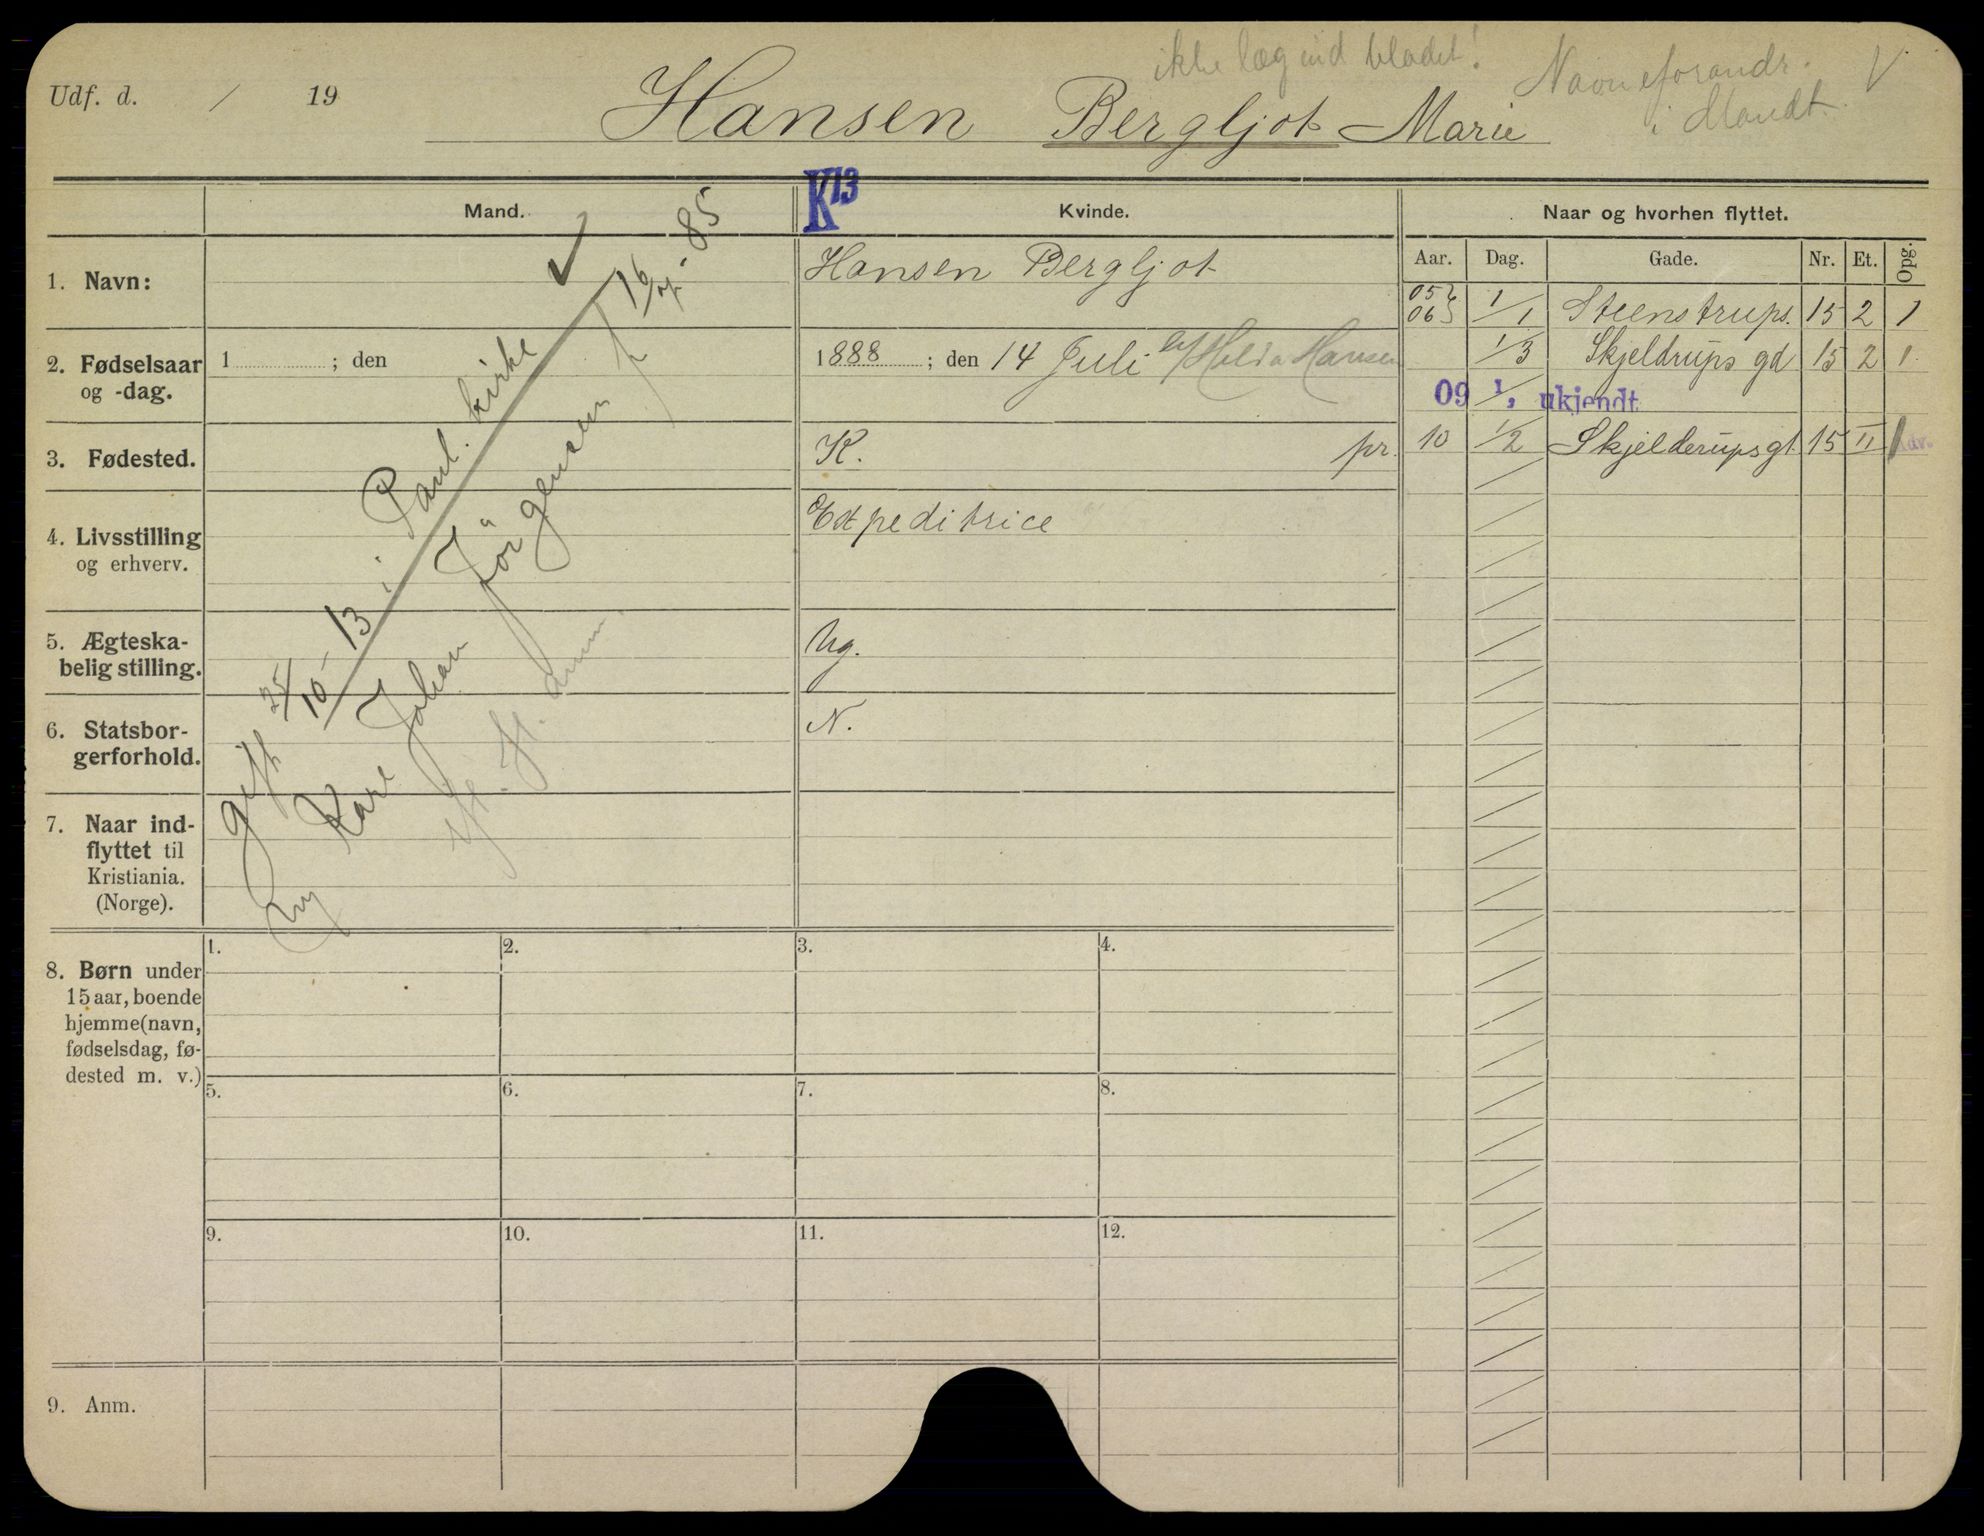 ikke læg ind bladet!
Navneforandr. V
i Mandt
Udf. d. / 19
Hansen Bergljot Marie
K13
Mand. Kvinde. Naar og hvorhen flyttet.
Aar. Dag. Gade. Nr. Et. Opg.
1. Navn: Hansen Bergljot
05 06 1/1 Steenstrups. 15 2 1
2. Fødselsaar og -dag. 1 ; den
1888 ; den 14 Juli Hansen
1/3 Skjeldrups gd 15 2 1
09 1/1, ukjendt
3. Fødested. K. pr.
10 1/2 Skjelderupsgt. 15 II 1
4. Livsstilling og erhverv. Expeditrice
5. Ægteska-
belig stilling. Ug.
6. Statsbor-
gerforhold. N.
7. Naar ind-
flyttet til
Kristiania.
(Norge).
gift 25/10-13 i Paul. kirke
m Karl Johan Jörgensen f
16/4-85
8. Børn under
15 aar, boende
hjemme (navn,
fødselsdag, fø-
dested m. v.)
1. 2. 3. 4.
5. 6. 7. 8.
9. 10. 11. 12.
9. Anm.